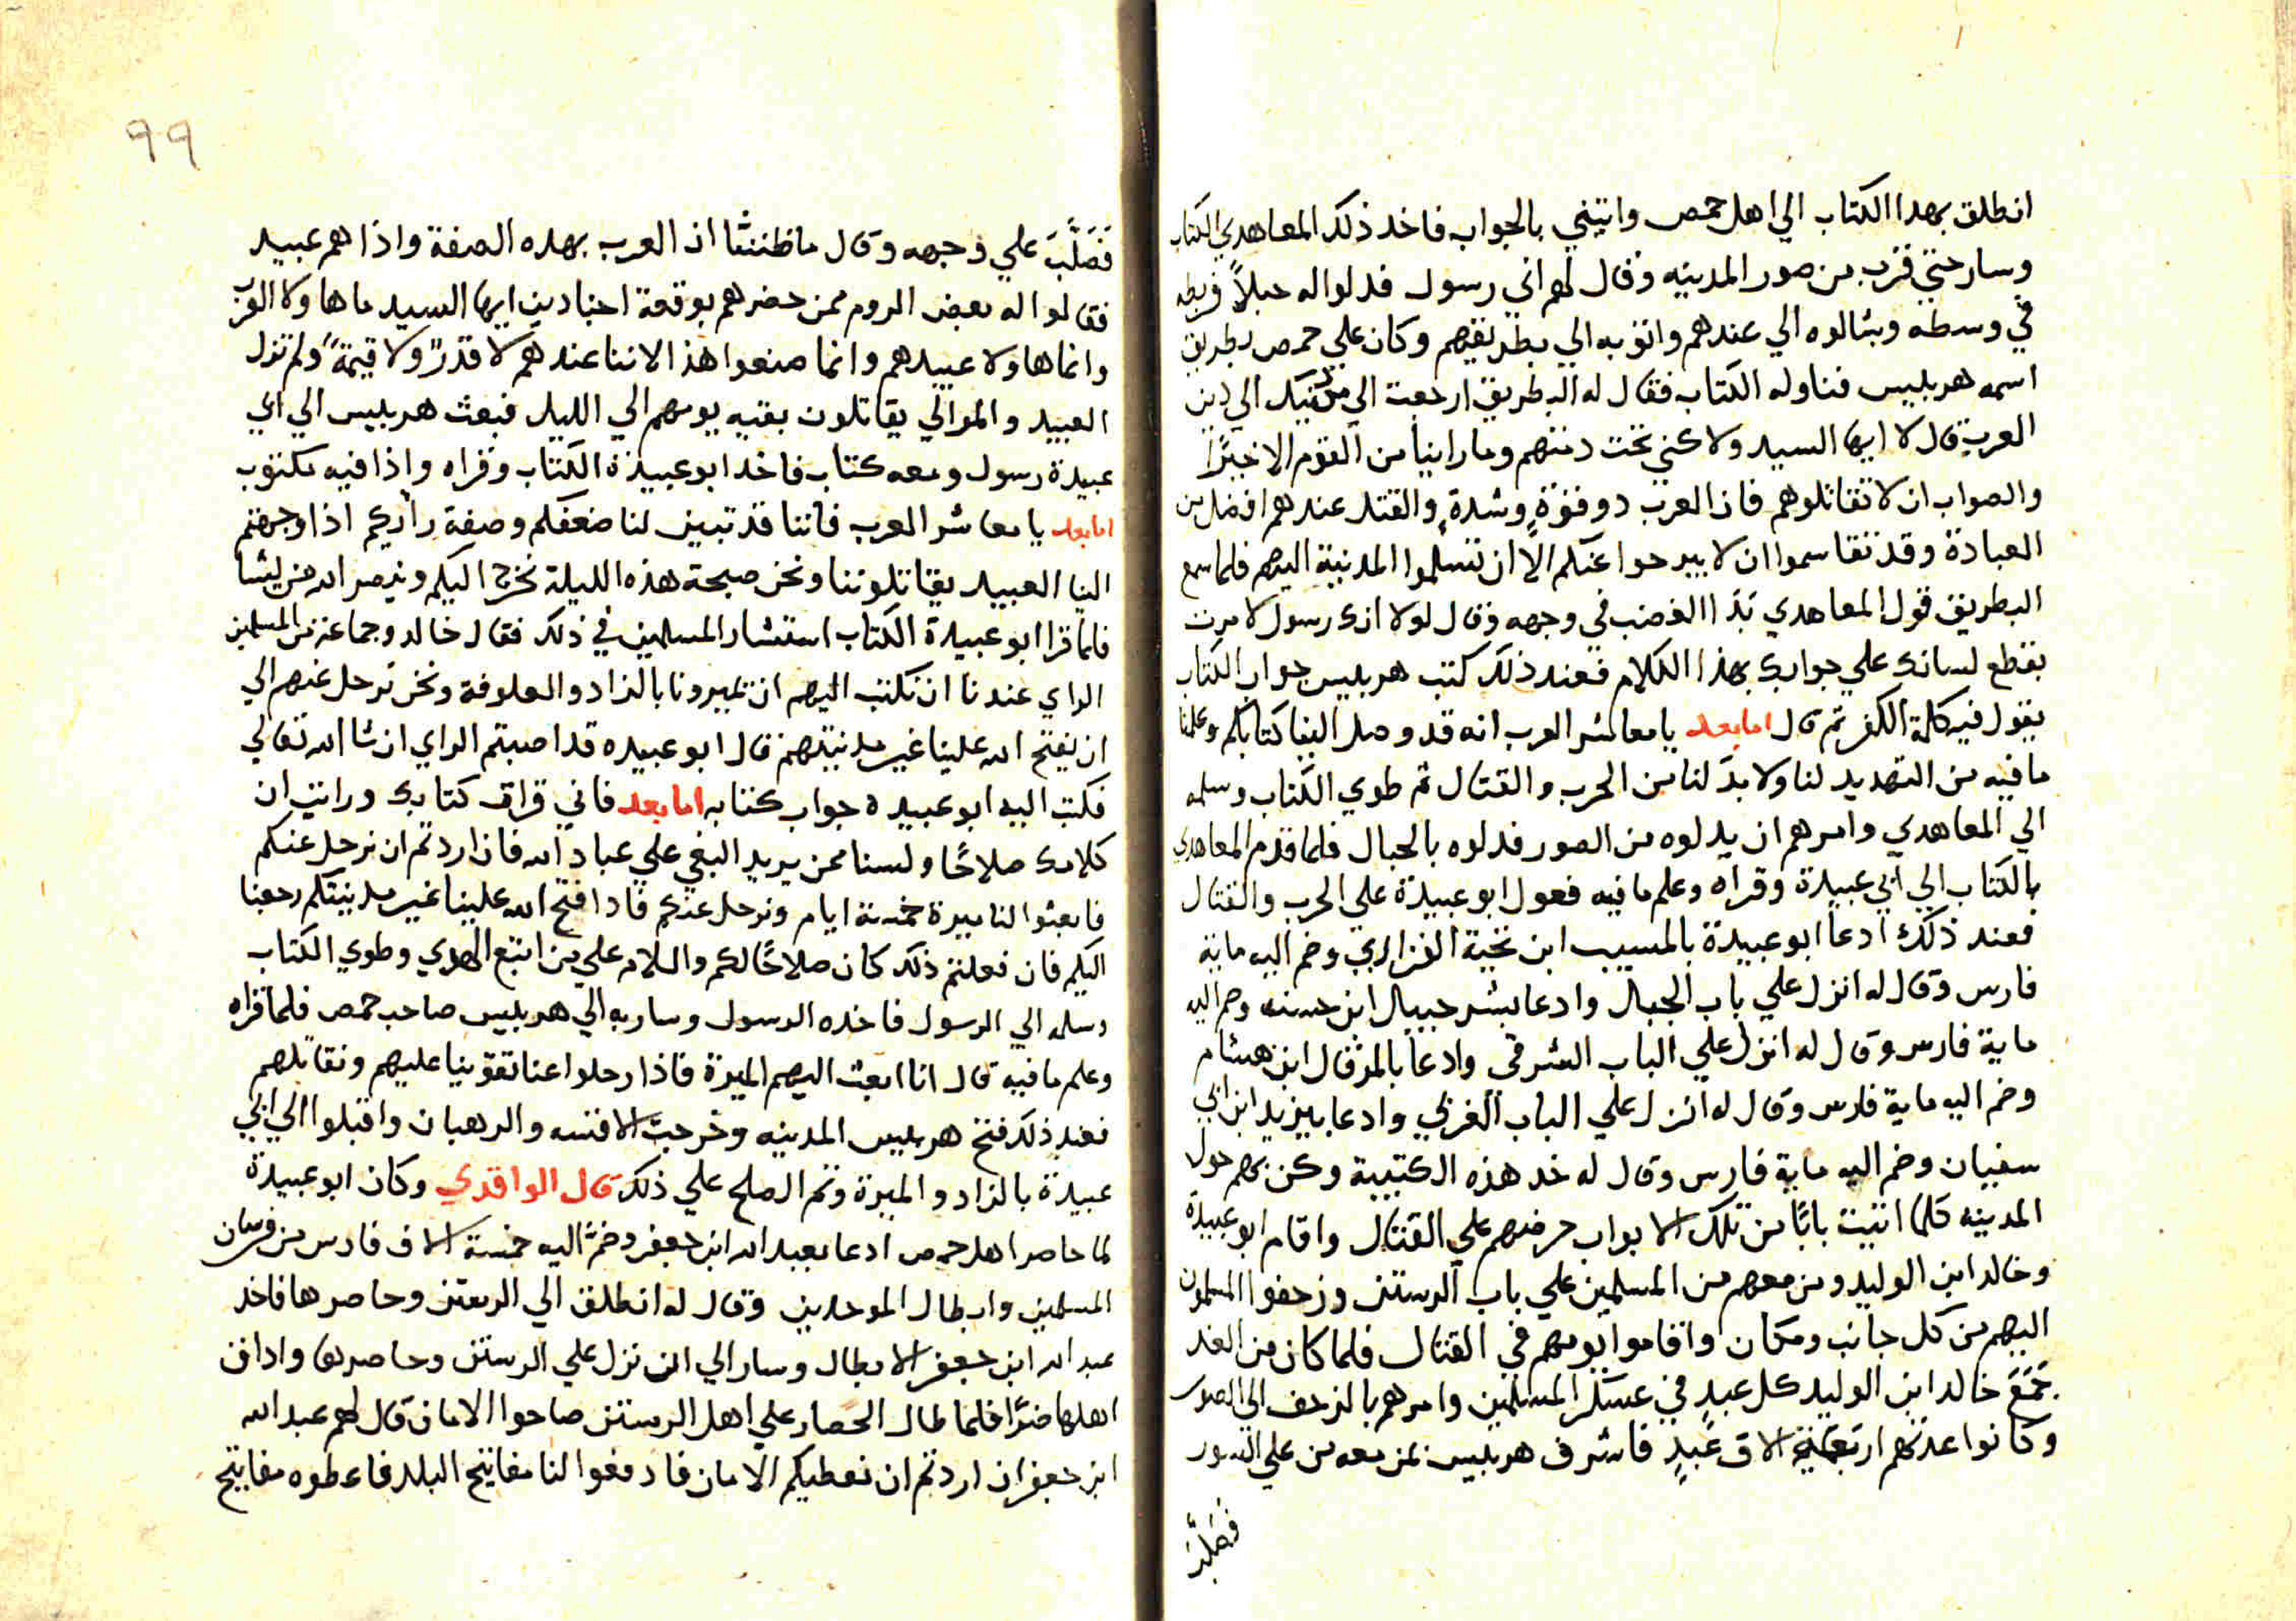 انطلق بهدا الكتاب الي اهل حمص واتيني بالجواب فاخد ذلك المعاهدي الكتاب
وسار حتي قرب من صور المدينه وقال لهم اني رسول فدلوا له حبلاً فربطه
في وسطه وشالوه الي عندهم واتو به الي بطريقهم وكان علي حمص بطريق
اسمه هربليس فناوله الكتاب فقال له البطريق ارجعت الي من دينك الي دين
العرب قال لا ايها السيد ولاكني تحت دمتهم وما راينا من القوم الا خيرًا
والصواب ان لا تقاتلوهم فان العرب دو قوةٍ وشدةٍ والقتل عندهم افضل من
العبادة وقد تقاسموا ان لا يبرحوا عنكم الاَّ ان تسلموا المدينة اليهم فلما سمع
البطريق قول المعاهدي بَدَا الغضب في وجهه وقال لولا انك رسول لامرت
بقطع لسانك علي جوابك بهذا الكلام فعند ذلك كتب هربليس جواب الكتاب
يقول فيه كلمة الكفر ثم قال اما بعد يا معاشر العرب انه قد وصل الينا كتابكم وعلمنا
ما فيه من التهديد لنا ولا بدَّ لنا من الحرب والقتال ثم طوي الكتاب وسلمه
الي المعاهدي وامرهم ان يدلوه من الصور فدلوه بالحبال فلما قدم المعاهدي
بالكتاب الي ابي عبيدة وقراه وعلم ما فيه فعول ابو عبيدة علي الحرب والقتال
فعند ذلك ادعا ابو عبيدة بالمسيب ابن نجية الفزاري وضم اليه ماية
فارس وقال له انزل علي باب الجبال وادعا بشرحبيال ابن حسنه وضم اليه
ماية فارس وقال له انزل علي الباب الشرقي وادعا بالمرقال ابن هشام
وضم اليه ماية فارس وقال له انزل علي الباب الغربي وادعا بيزيد ابن ابي
سفيان وضم اليه ماية فارس وقال له خد هذه الكتيبة وكن بهم حول
المدينه كلما اتيت بابًا من تلك الابواب حرضهم علي القتال واقام ابو عبيدة
وخالد ابن الوليد ومن معهم من المسلمين علي باب الرستن وزحفوا المسلمون
اليهم من كل جانب ومكان واقاموا يومهم في القتال فلما كان من الغد
جَمَعَ خالد ابن الوليد كل عبدٍ في عسكر المسلمين وامرهم بالزحف الي الصور
وكانوا عدتهم اربعة الاف عَبدٍ فاشرف هربليس بمن معه من علي السور
فصلَّبَ
٩٩
فَصَلَّبَ علي وجهه وقال ما ظننتُ ان العرب بهده الصفة واذا هم عبيد
فقالوا له بعض الروم ممن حضرهم بوقعة اجنادين ايها السيد ما هاولا العرب
وانما هاولا عبيدهم وانما صنعوا هذا لاننا عندهم لا قَدْرً ولا قيمةً ولم تزل
العبيد والموالي يقاتلون بقيه يومهم الي الليل فبعث هربليس الي ابي
عبيدة رسول ومعه كتاب فاخد ابو عبيدة الكتاب وقراه واذا فيه مكتوب
اما بعد يا معاشر العرب فاننا قد تبين لنا ضعفكم وصفة رايكم اذا وجهتم
الينا العبيد يقاتلوننا ونحن صبحة هذه الليلة نخرج اليكم وينصر الله من يشا
فلما قرا ابو عبيدة الكتاب استشار المسلمين في ذلك فقال خالد وجماعة من المسلمين
الراي عندنا ان نكتب اليهم ان يميرونا بالزاد والعلوفة ونحن نرحل عنهم الي
ان يفتح الله علينا غير مدينتهم قال ابو عبيده قد اصبتم الراي ان شا الله تعالي
فكتب اليه ابو عبيده جواب كتابه اما بعد فاني قرات كتابك ورايت ان
كلامك صلاحًا ولسنا ممن يريد البغي علي عباد الله فان اردتم ان نرحل عنكم
فابعثوا لنا ميرة خمسة ايام ونرحل عنكم فادا فتح الله علينا غير مدينتكم رجعنا
اليكم فان فعلتم ذلك كان صلاحًا لكم والسلام علي من اتبع الهدي وطوي الكتاب
وسلمه الي الرسول فاخده الرسول وسار به الي هربليس صاحب حمص فلما قراه
وعلم ما فيه قال انا ابعث اليهم الميرة فاذا رحلوا عنا تقوينا عليهم ونقاتلهم
فعند ذلك فتح هربليس المدينه وخرجت الاقسه والرهبان واقبلوا الي ابي
عبيدة بالزاد والميرة وتم الصلح علي ذلك قال الواقدي وكان ابو عبيدة
لما حاصر اهل حمص ادعا بعبد الله ابن جعفر وضمَّ اليه خمسة الاف فارس من فرسان
المسلمين وابطال الموحدين وقال له انطلق الي الرستن وحاصرها فاخد
عبد الله ابن جعفر الابطال وسار الي ان نزل علي الرستن وحاصرها واداق
اهلها ضرًا فلما طال الحصار علي اهل الرستن صاحوا الامان قال لهم عبد الله
ابن جعفر ان اردتم ان نعطيكم الامان فادفعوا لنا مفاتيح البلد فاعطوه مفاتيح